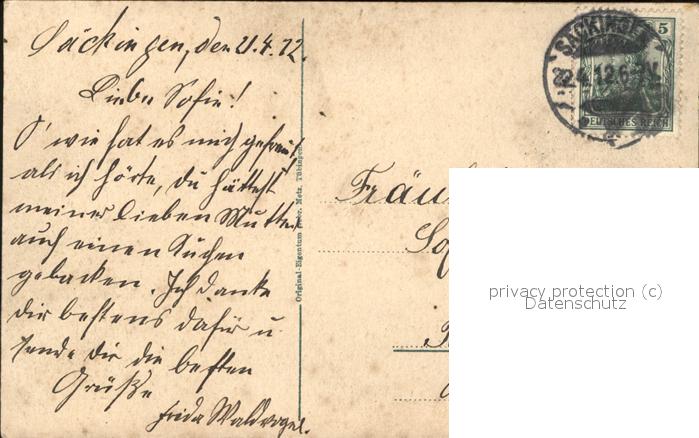 Säckingen, den 21.4.12.
Liebe Sofie!
O' wie hat es mich gefreut
als ich hörte, du hättest
meiner lieben Mutter
auch einen Kuchen
gebacken. Ich danke
dir bestens dafür u
sende dir die besten
Grüße
Frida Waldvogel.
Original-Eigentum Gebr. Metz, Tübingen
SÄCKINGEN
22.4.12.6-7N.
5
DEUTSCHES REICH
Fräul
Sof
privacy protection (c)
Datenschutz